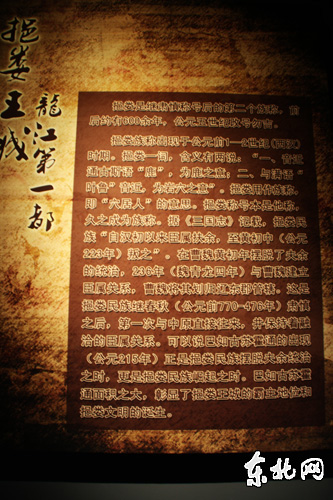 挹娄王城
龍江第一部
挹娄是继肃慎称号后的第二个族称，前
后约有600余年，公元五世纪改号勿吉。
挹娄族称出现于公元前1—2世纪（西汉）
时期。挹娄一词，含义有两说：“一、音近
通古斯语“鹿”，为鹿之意；二、与满语“
叶鲁”音近，为岩穴之意”。挹娄用作族称，
即“穴居人”的意思。挹娄称号本是他称，
久之成为族称。据《三国志》记载，挹娄民
族“自汉初以来臣属扶余，至黄初中（公元
223年）叛之”。在曹魏黄初年摆脱了夫余
的统治，236年（魏青龙四年）与曹魏建立
臣属关系，曹魏将其划归辽东郡管辖。这是
挹娄民族继春秋（公元前770—476年）肃慎
之后，第一次与中原直接往来，并保持着融
洽的臣属关系。可以说巴如古苏霍通的出现
（公元215年）正是挹娄民族摆脱夫余统治
之时，更是挹娄民族崛起之时。巴如古苏霍
通面积之大，彰显了挹娄王城的霸主地位和
挹娄文明的诞生。
东北网